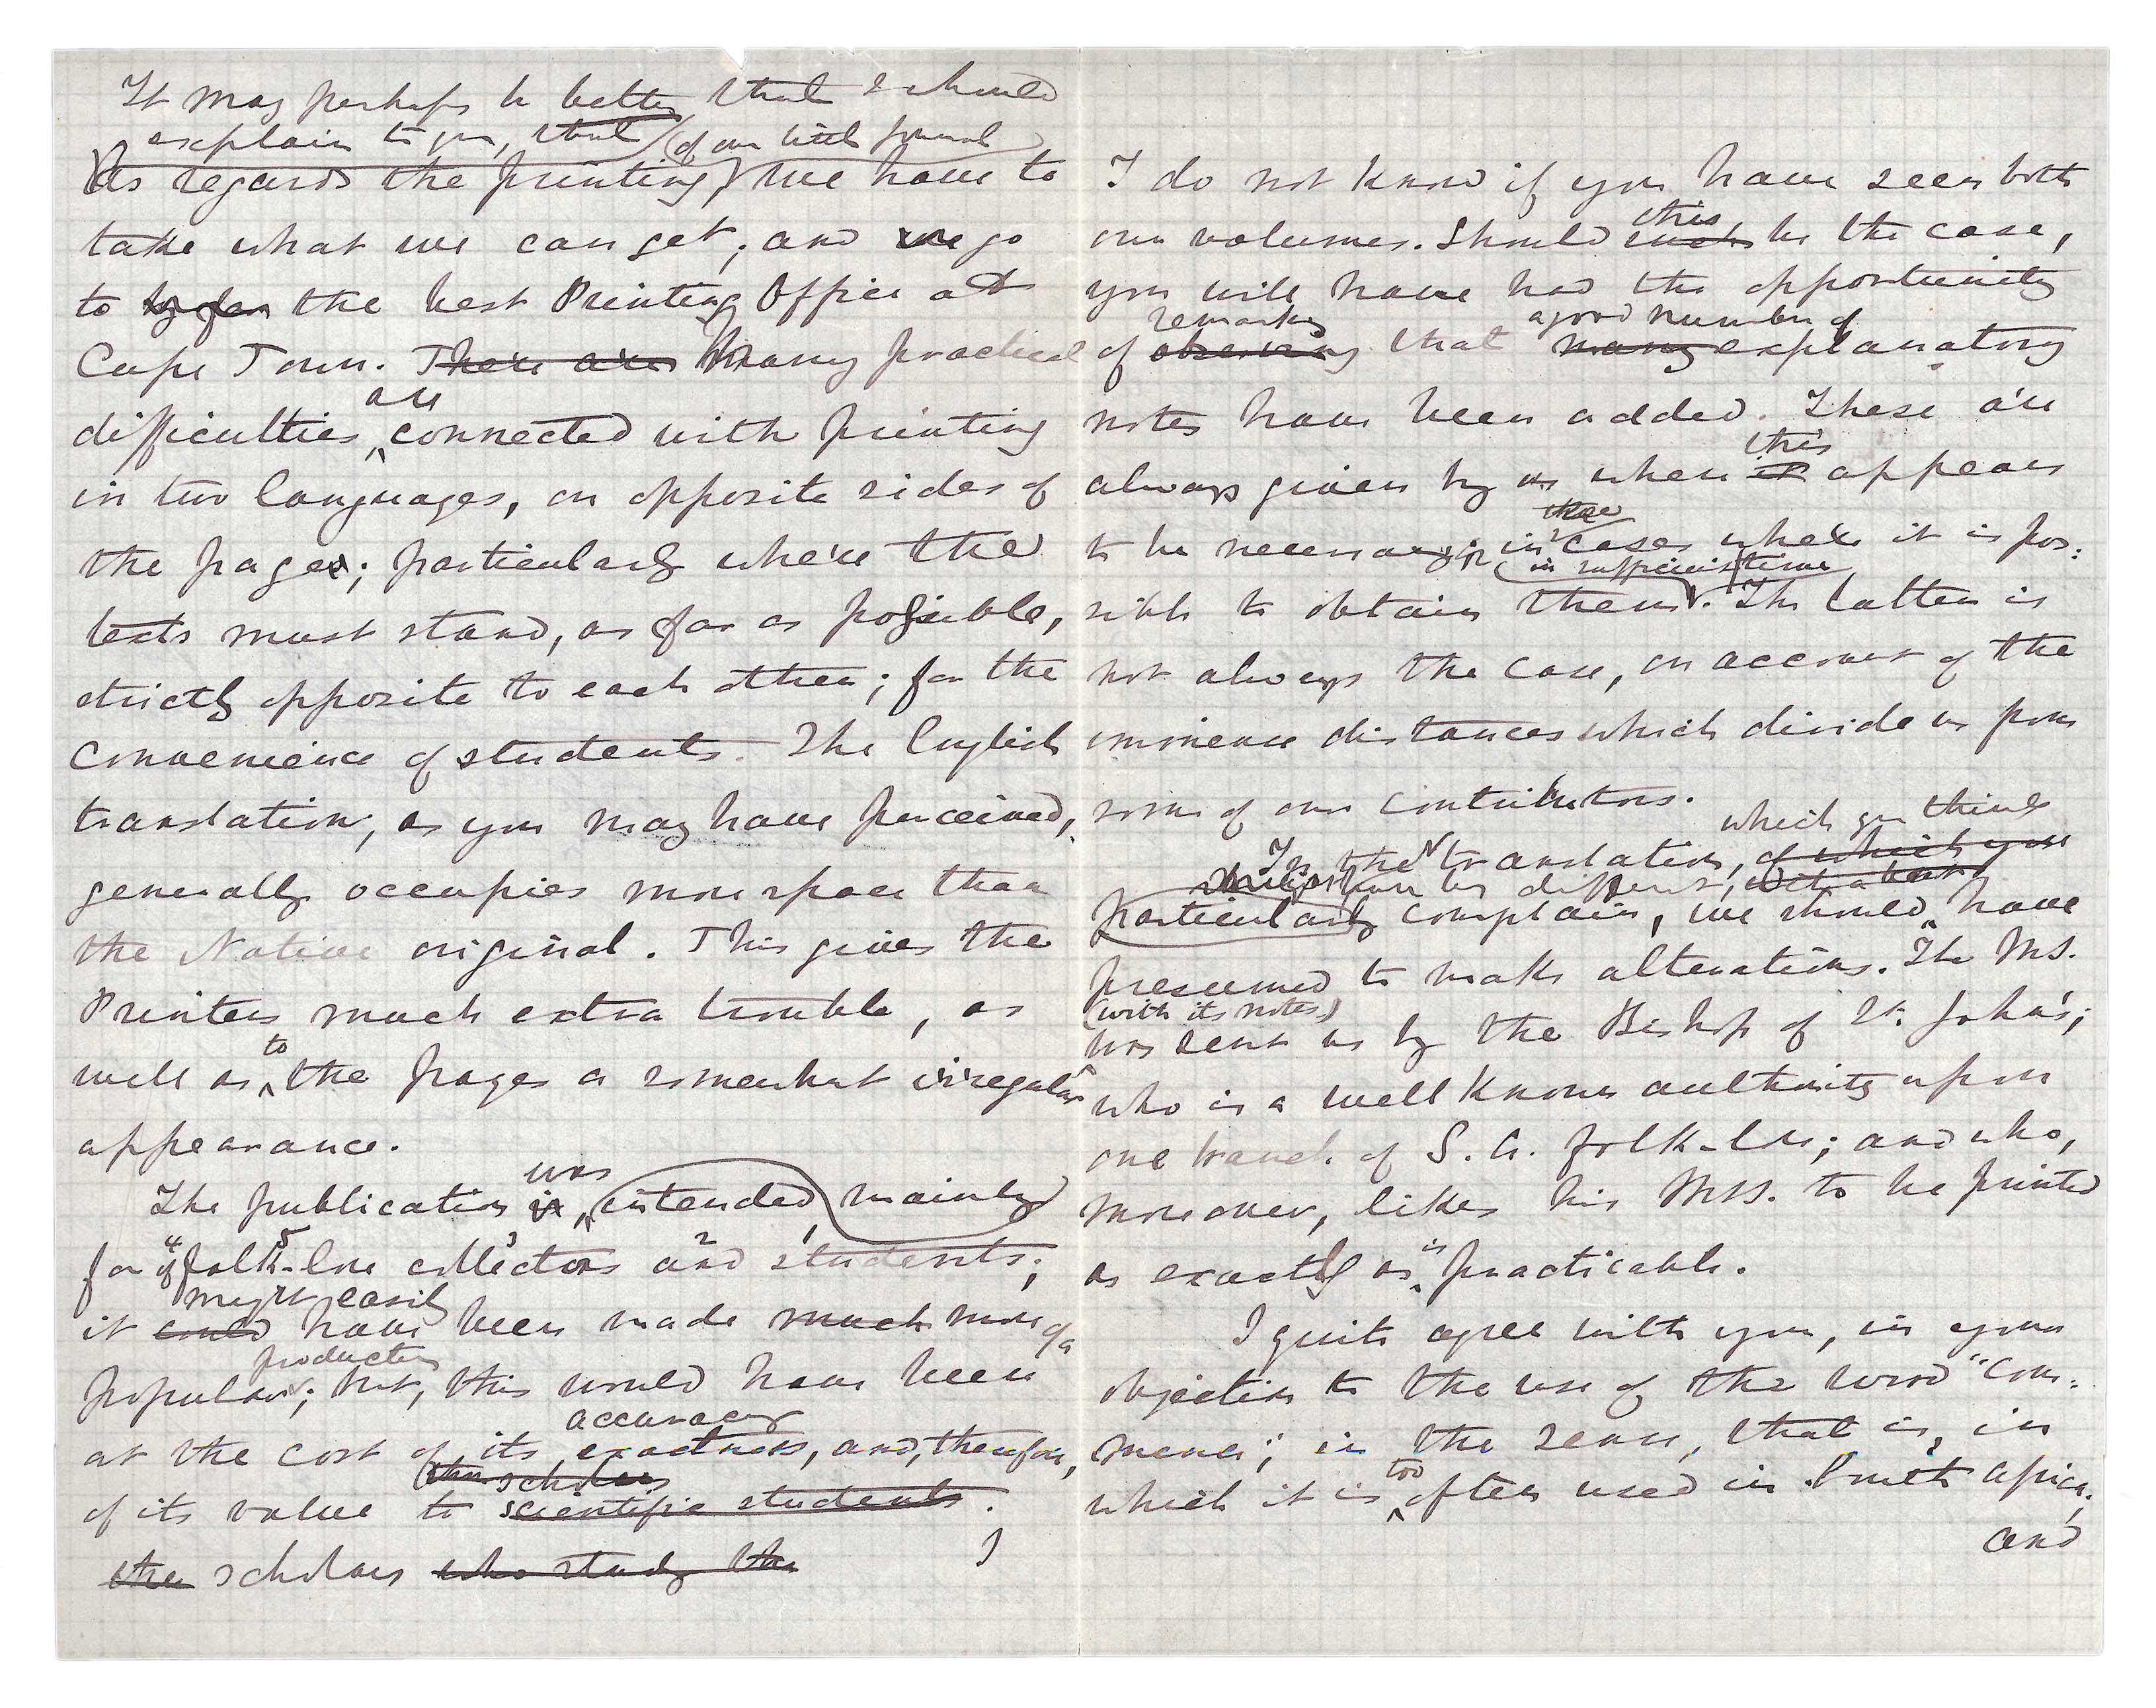 It may perhaps be better that I should
explain to you, that (of our little journal)
As regards the printing, we have to
take what we can get; and we go
to the best Printing Office at
Cape Town. There are Many practical
are
difficulties connected with printing
in two languages, on opposite sides of
the page; particularly where the
texts must stand, as far as possible,
strictly opposite to each other; for the
convenience of students. The English
translation, as you may have perceived,
generally occupies more space than
the Native original. This gives the
Printers much extra trouble, as
to
well as the pages a somewhat irregular
appearance.
was
The publication is intended mainly
4 5 3 2 1
for of folk-lore collectors and students;
might easily
it could have been made much more of a
production
popular; but, this would have been
accuracy
at the cost of its exactness, and, therefore,
the scholars
of its value to scientific students.
the scholars who study the
I
I do not know if you have seen both
this
our volumes. Should such be the case,
you will have had the opportunity
remarking a good number of
of observing that many explanatory
notes have been added. These are
this
always given by us when it appears
those
to be necessary; in cases where it is pos:
in sufficient time
sible to obtain them. The latter is
not always the case, on account of the
immense distances which divide us from
some of our contributors.
which you think
In the translation, of which you
different,
particularly complain, we should have
presumed to make alterations. The MS.
(with its notes)
was sent us by the Bishop of St. John's;
who is a well known authority upon
one branch of S. A. folk-lore; and who,
moreover, likes his MSS. to be printed
is
as exactly as practicable.
I quite agree with you, in your
objection to the use of the word "com:
mence", in the sense, that is, in
too
which it is often used in South Africa;
and